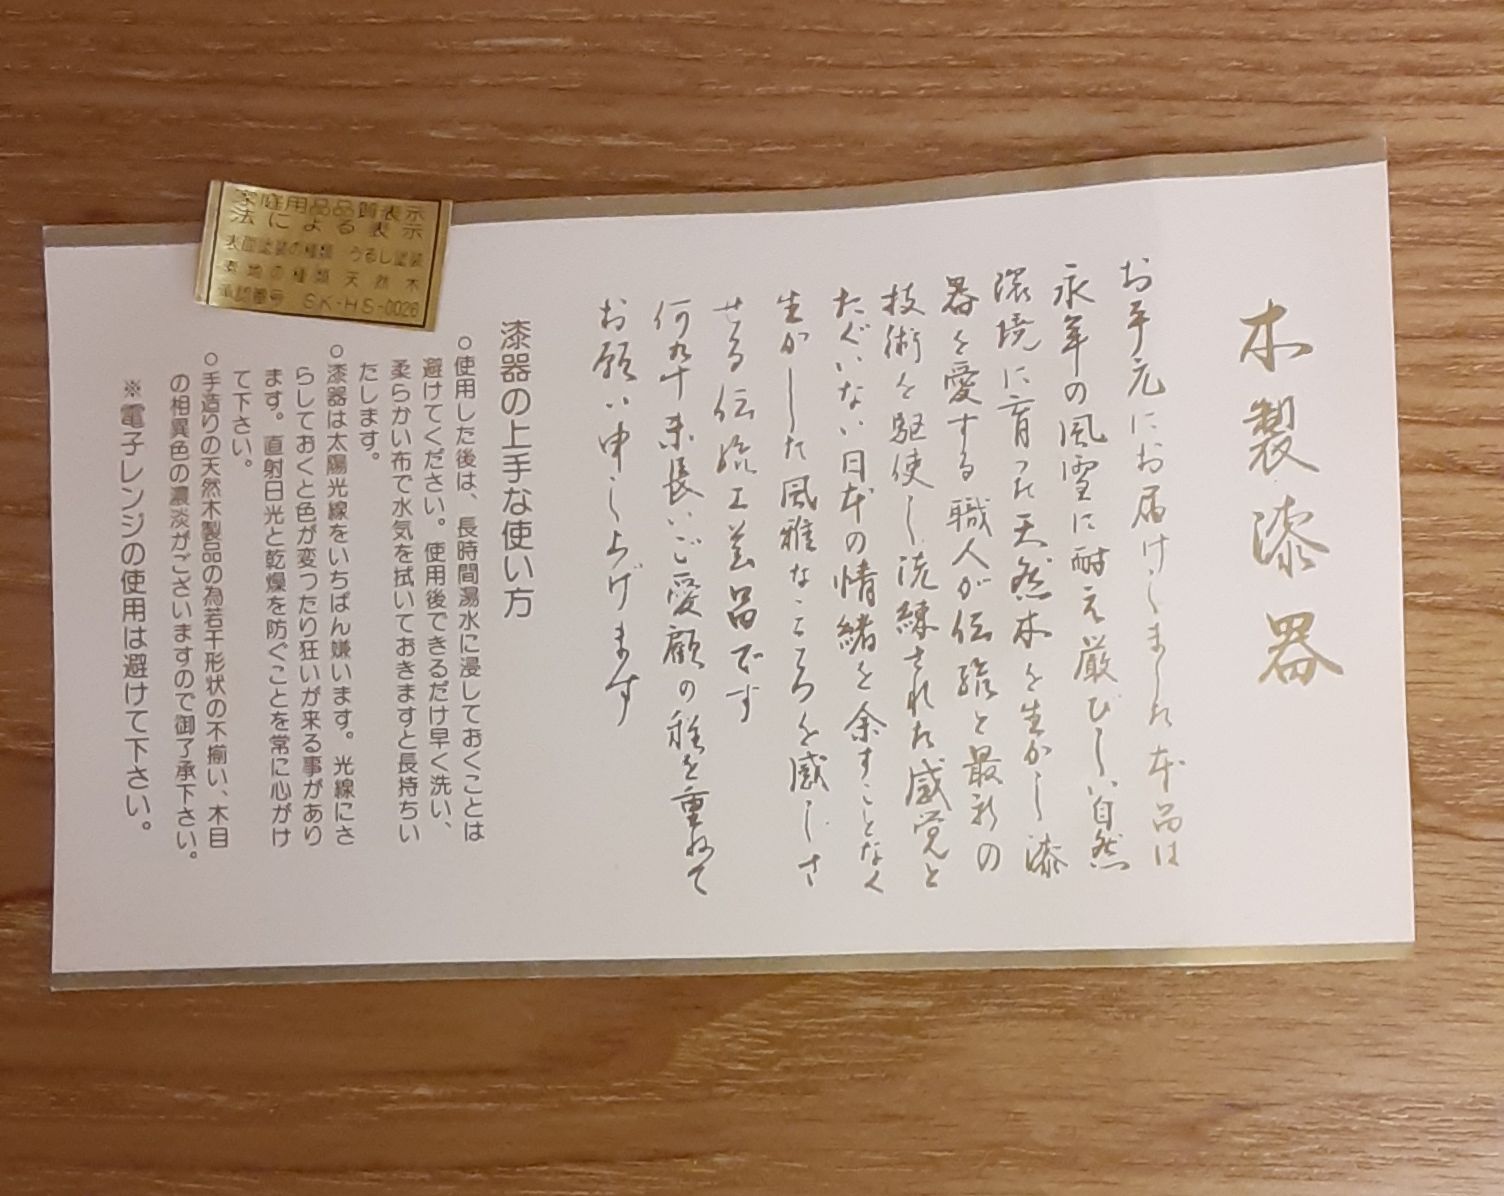 木製漆器
お手元にお届けしました本品は
永年の風雪に耐え厳びしい自然
環境に育った天然木を生かし漆
器を愛する職人が伝統と最新の
技術を駆使し洗練された感覚と
たぐいない日本の情緒を余すことなく
生かした風雅なこころを感じさ
せる伝統工芸品です
何卒末長いご愛顧の程を重ねて
お願い申し上げます
漆器の上手な使い方
○使用した後は、長時間湯水に浸しておくことは
避けてください。使用後できるだけ早く洗い、
柔らかい布で水気を拭いておきますと長持ちい
たします。
○漆器は太陽光線をいちばん嫌います。光線にさ
らしておくと色が変つたり狂いが来る事があり
ます。直射日光と乾燥を防ぐことを常に心がけ
て下さい。
○手造りの天然木製品の為若干形状の不揃い、木目
の相異色の濃淡がございますので御了承下さい。
※電子レンジの使用は避けて下さい。
家庭用品品質表示
法による表示
表面塗装の種類 うるし塗装
素地の種類 天然木
承認番号 SK-HS-0026